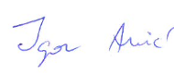 Igor Anić